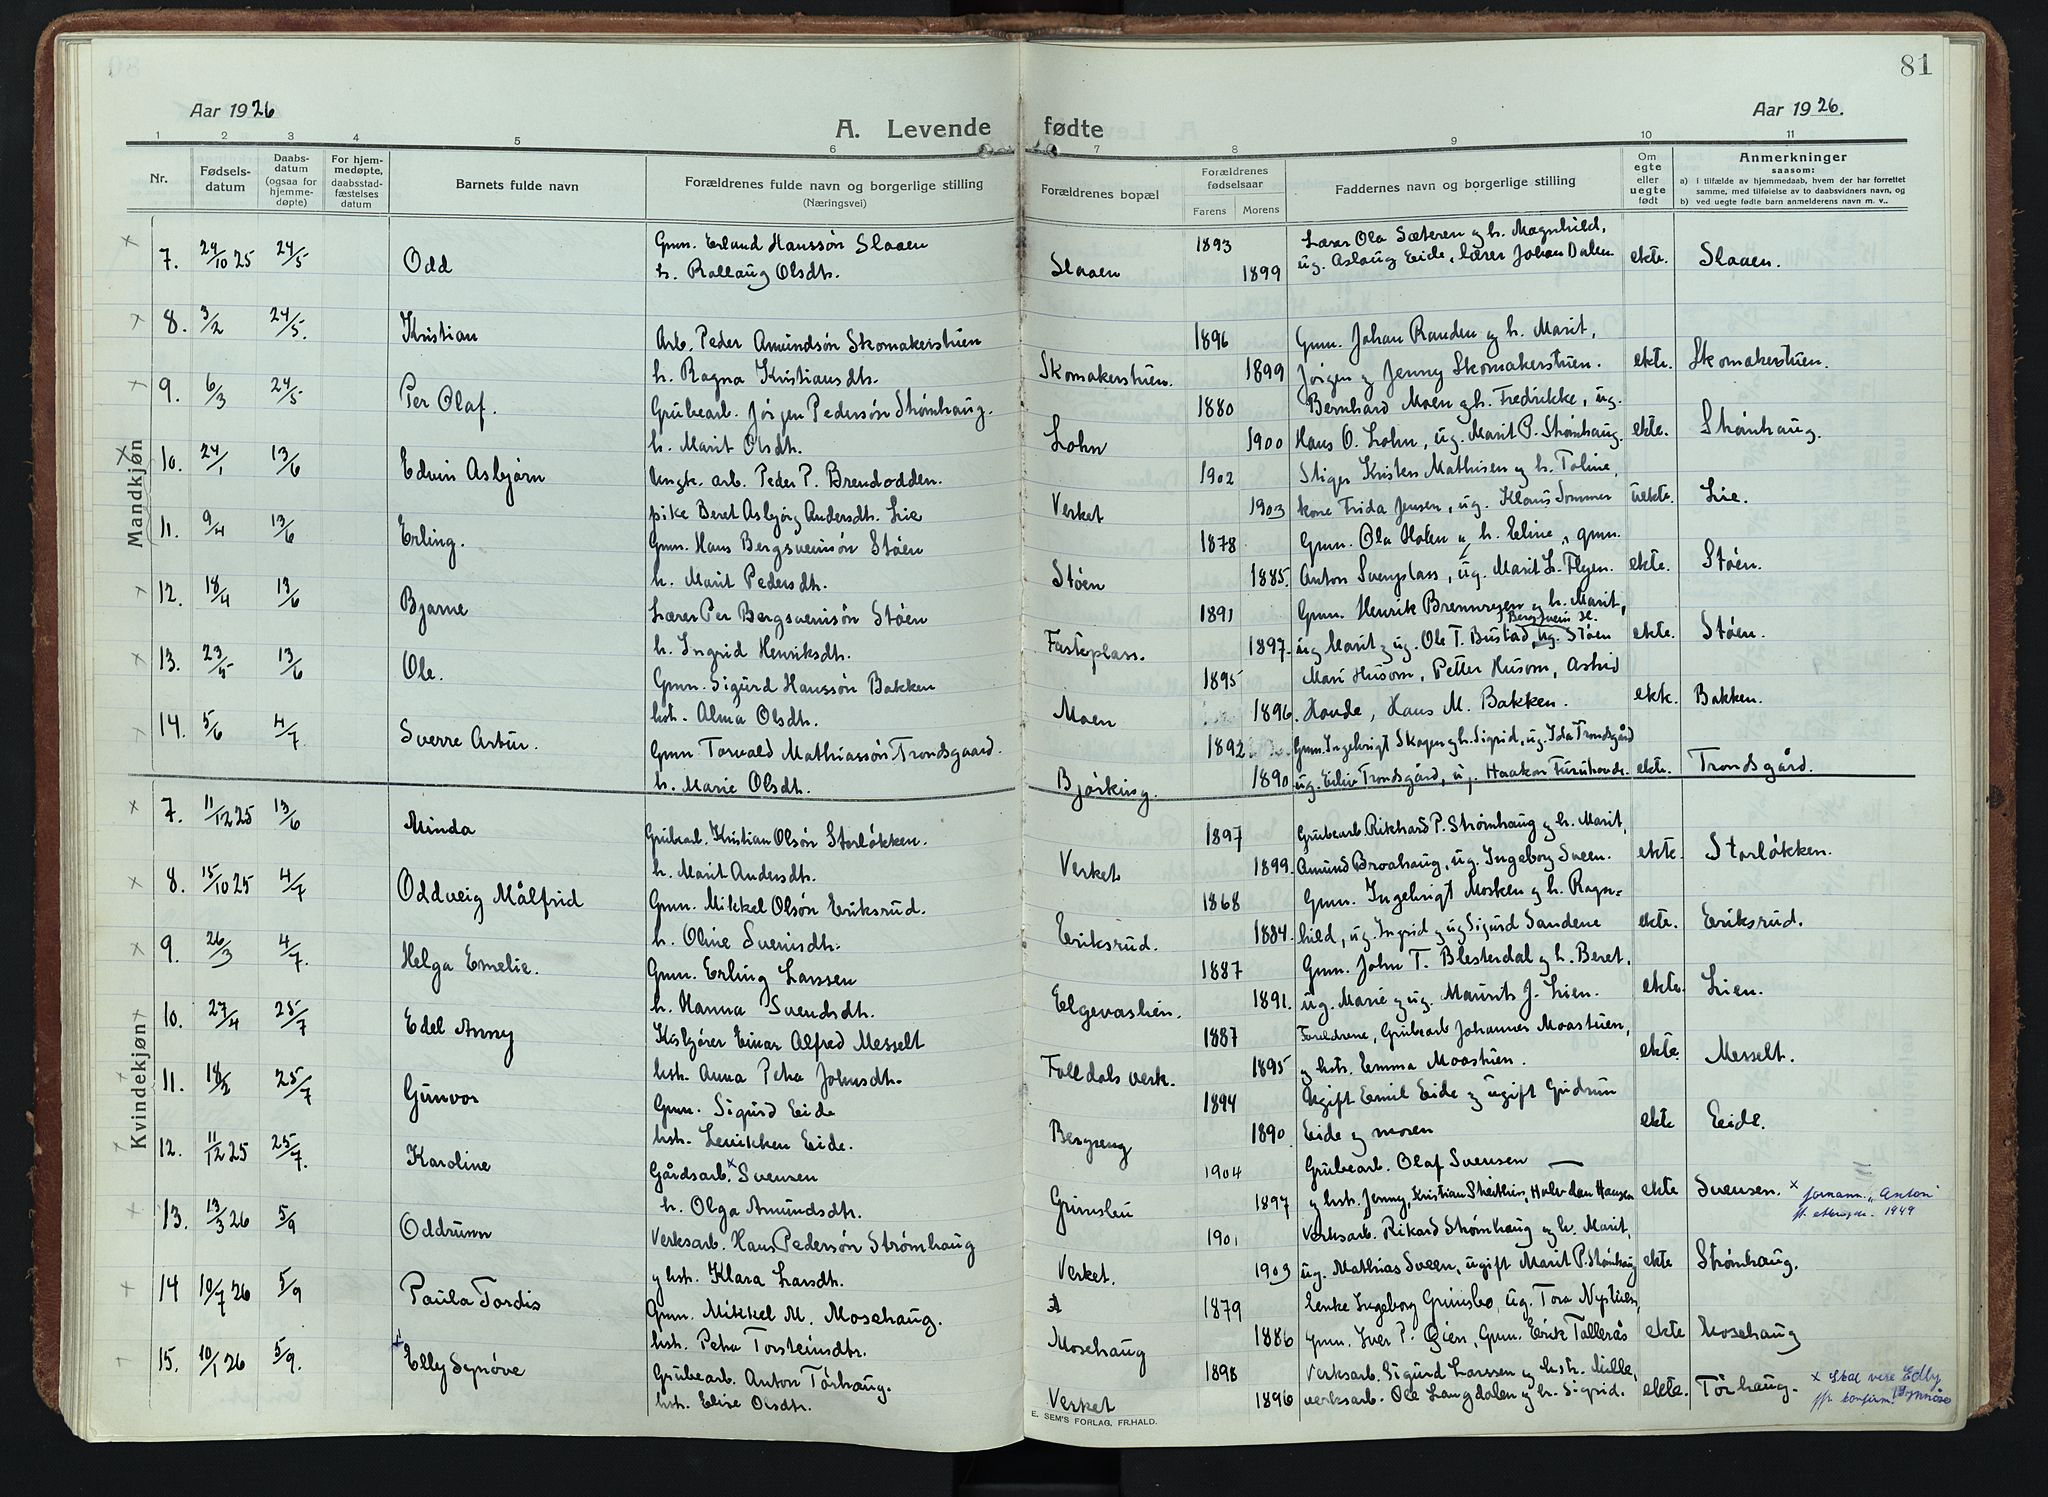 81
Aar 1926
Aar 1926.
A. Levende fødte
1 2 3 4 5 6 7 8 9 10 11
Nr.
Fødselsdatum
Daabsdatum (ogsaa for hjemmedøpte)
For hjemmedøpte, daabsstadfæstelses datum
Barnets fulde navn
Forældrenes fulde navn og borgerlige stilling
(Næringsvei)
Forældrenes bopæl
Forældrenes fødselsaar
Farens Morens
Faddernes navn og borgerlige stilling
Om egte eller uegte født
Anmerkninger
saasom:
a) i tilfælde av hjemmedaab, hvem der har forrettet samme, med tilføielse av to daabsvidners navn, og
b) ved uegte fødte barn anmelderens navn m. v..
Mandkjøn
7. 24/10 25 24/5 Odd Gmn. Erland Hanssøn Slaaen 1893 Lærer Ola Sæteren og h. Magnhild,
h. Rallaug Olsdtr. Slaaen 1899 ug. Aslaug Eide, lærer Johan Dalen ekte. Slaaen.
8. 3/2 24/5. Kristian Arb. Peder Amundsøn Skomakerstuen 1896 Gmn. Johan Randen og h. Marit,
h. Ragna Kristiansdtr. Skomakerstuen. 1899 Jørgen og Jenny Skomakerstuen. ekte. Skomakerstuen.
9. 6/3 24/5 Per Olaf. Grubearb. Jørgen Pedersøn Strømhaug. 1880 Bernhard Moen og h. Fredrikke, ug.
h. Marit Olsdtr. Lohn 1900 Hans O. Lohn, ug. Marit P. Strømhaug. ekte. Strømhaug.
10. 24/1 13/6 Edvin Asbjørn Ungk. arb. Peder P. Brendodden. 1902 Stiger Kristen Mathisen og h. Toline,
pike Beret Asbjørg Andersdtr. Lie Verket 1903 kone Frida Jensen, ug. Klaus Sommer uekte. Lie.
11. 9/4 13/6 Erling. Gmn. Hans Bergsveinsøn Støen 1878 Gmn. Ola Holen og h. Eline, gmn.
h. Marit Pedersdtr. Støen 1885. Anton Svengplass, ug. Marit L. Flyen. ekte. Støen.
12. 18/4 13/6 Bjarne Lærer Per Bergsveinsøn Støen 1891 Gmn. Henrik Brennmoen og h. Marit,
h. Ingrid Henriksdtr. Fasteplass. 1897. ug Marit og ug. Ole T. Bustad, ug. Bergsvein H. Støen ekte. Støen.
13. 23/5 13/6 Ole. Gmn. Sigurd Hanssøn Bakken 1895 Mari Husom, Petter Husom, Astrid
hst. Alma Olsdtr. Moen 1896. Hovde, Hans M. Bakken. ekte. Bakken.
14. 5/6 4/7 Sverre Artur. Gmn Torvald Mathiassøn Trondsgaard. 1892 Gmn. Ingebrigt Skogen og h. Sigrid, ug. Ida Trondsgård
h. Marie Olsdtr. Bjørking. 1890 ug. Eiliv Trondsgård, ug. Haakon Furuhovde. ekte. Trondsgård.
Kvindekjøn
7. 11/12 25 13/6 Minda Grubearb. Kristian Olsøn Storløkken. 1897 Grubearb. Rikhard P. Strømhaug og h. Marit,
h. Marit Andersdtr. Verket 1899. Amund Brohaug, ug. Ingeborg Sveen. ekte. Storløkken.
8. 15/10 25 4/7 Oddveig Målfrid Gmn. Mikkel Olsøn Eriksrud. 1868 Gmn. Ingebrigt Mosken og h. Ragn-
h. Oline Sveinsdtr. Eriksrud. 1884. hild, ug. Ingrid og ug Sigurd Sandene ekte. Eriksrud.
9. 26/3 4/7. Helga Emelie. Gmn. Erling Larssen 1887 Gmn. John T. Blesterdal og h. Beret,
h. Hanna Svendsdtr. Elgevaslien. 1891. ug. Marie og ug. Maurits J. Lien. ekte. Lien.
10. 27/4 25/7 Edel Anny Kiskjører Einar Alfred Messelt 1887 Foreldrene, Grubearb Johannes Moastuen,
hst. Anna Petra Johnsdtr. Folldals verk. 1895 og hst. Emma Moastuen. ekte. Messelt.
11. 18/2 25/7 Gunvor Gmn. Sigurd Eide 1894 Ugift Emil Eide og ugift Gudrun
hst. Lenikken Eide. Bergseng 1890. Eide og moren ekte Eide.
12. 11/12 25 25/7. Karoline Gårdsarb. x Svensen 1904 Grubearb. Olaf Svensen
h. Olga Amundsdtr. Grimsbu 1897 og hst. Jenny, Kristian Streitlien, Halvdan Hansen ekte Svensen. x fornavn. "Anton"
13. 13/3 26 5/9 Oddrunn Verksarb. Hans Pedersøn Strømhaug 1901 Verksarb. Rikard Strømhaug og h. Marit,
og hst. Klara Larsdtr. Verket. 1903 ug. Mathias Sveen, ugift Marit P. Strømhaug ekte Strømhaug.
14 10/7 26 5/9 Paula Tordis Gmn. Mikkel M. Mosehaug. 1879 Enke Ingeborg Grimsbo, ug. Tora Nystuen,
hst. Petra Torsteinsdtr. Mosehaug 1886 gmn. Iver P. Øien, Gmn. Erik Tallerås ekte Mosehaug
15. 10/1 26 5/9. Elly Synøve Grubearb. Anton Tørhaug. 1898 Verksarb. Sigurd Larssen og hst. Milla,
hst. Elise Olsdtr. Verket 1896 verksarb. Ole Langdalen og h. Sigrid. ekte. Tørhaug. x Skal være Edby Synnøve
E. SEM'S FORLAG, FR.HALD.